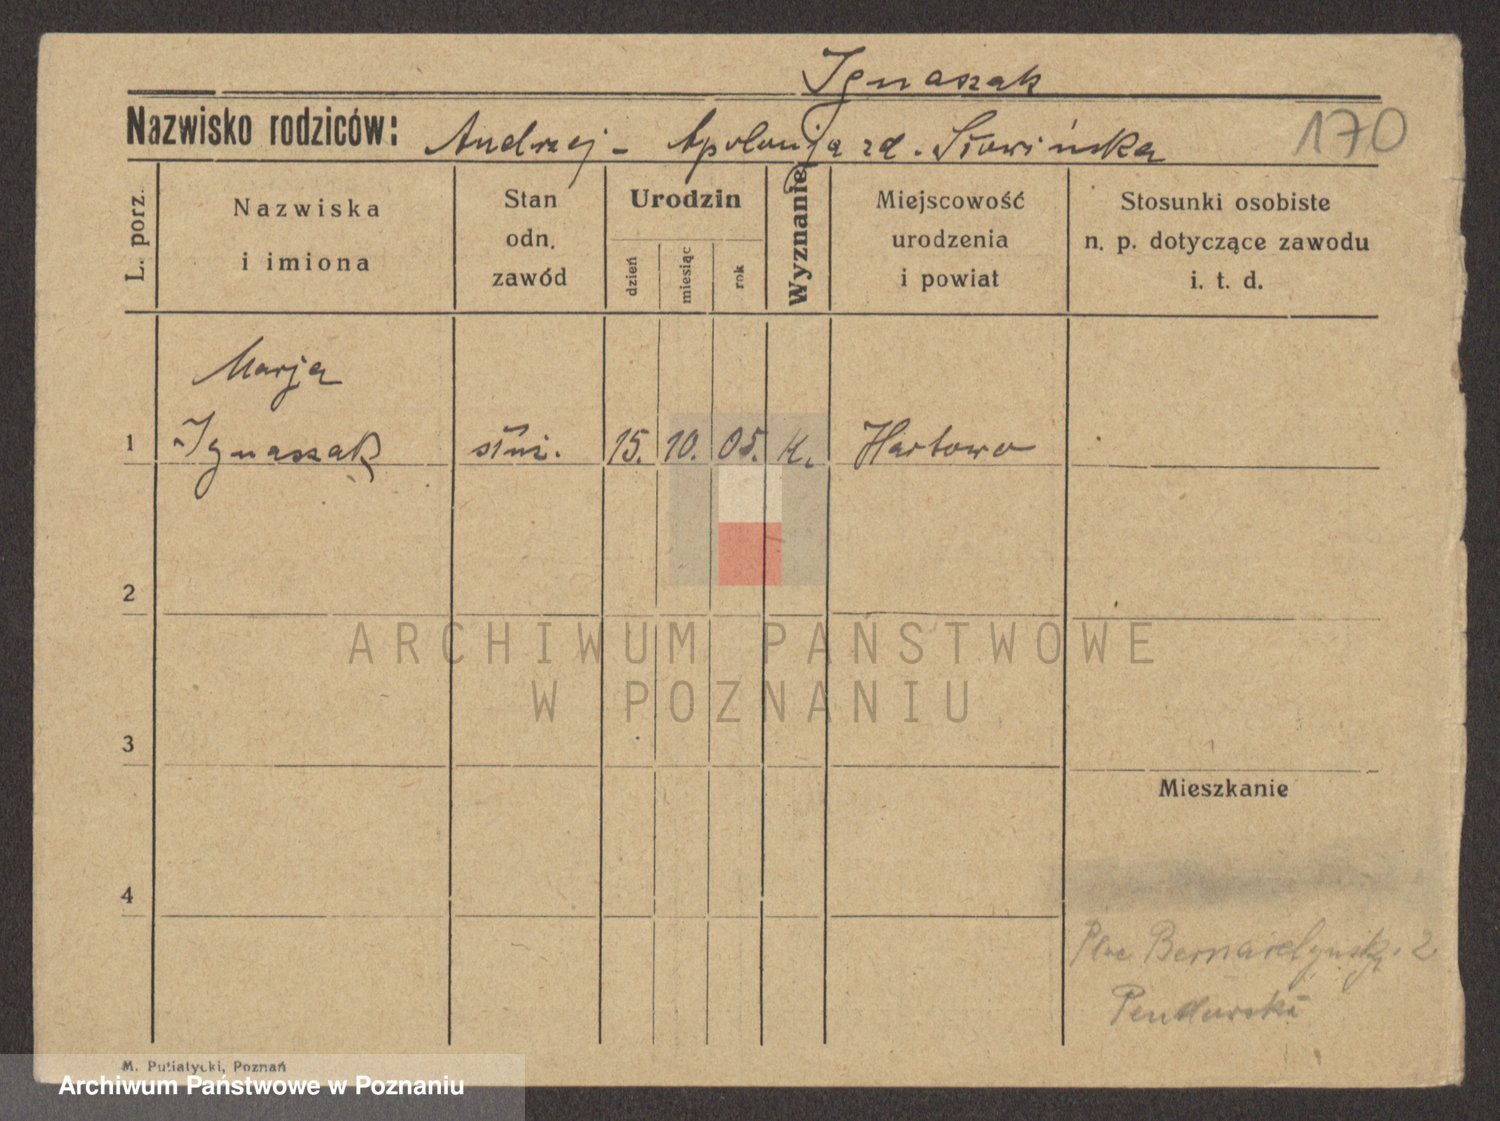 Ignaszak
Nazwisko rodziców: Andrzej - Apolonja zd. Słowińska
170
L. porz.
Nazwiska
i imiona
Stan
odn.
zawód
Urodzin
dzień
miesiąc
rok
Wyznanie
Miejscowość
urodzenia
i powiat
Stosunki osobiste
n. p. dotyczące zawodu
i. t. d.
Marja
1 Ignaszak służ. 15. 10. 05. k. Hartowo
2
3
4
Mieszkanie
Plac Bernardyński 2
M. Putiatycki, Poznań
ARCHIWUM PAŃSTWOWE
W POZNANIU
Archiwum Państwowe w Poznaniu